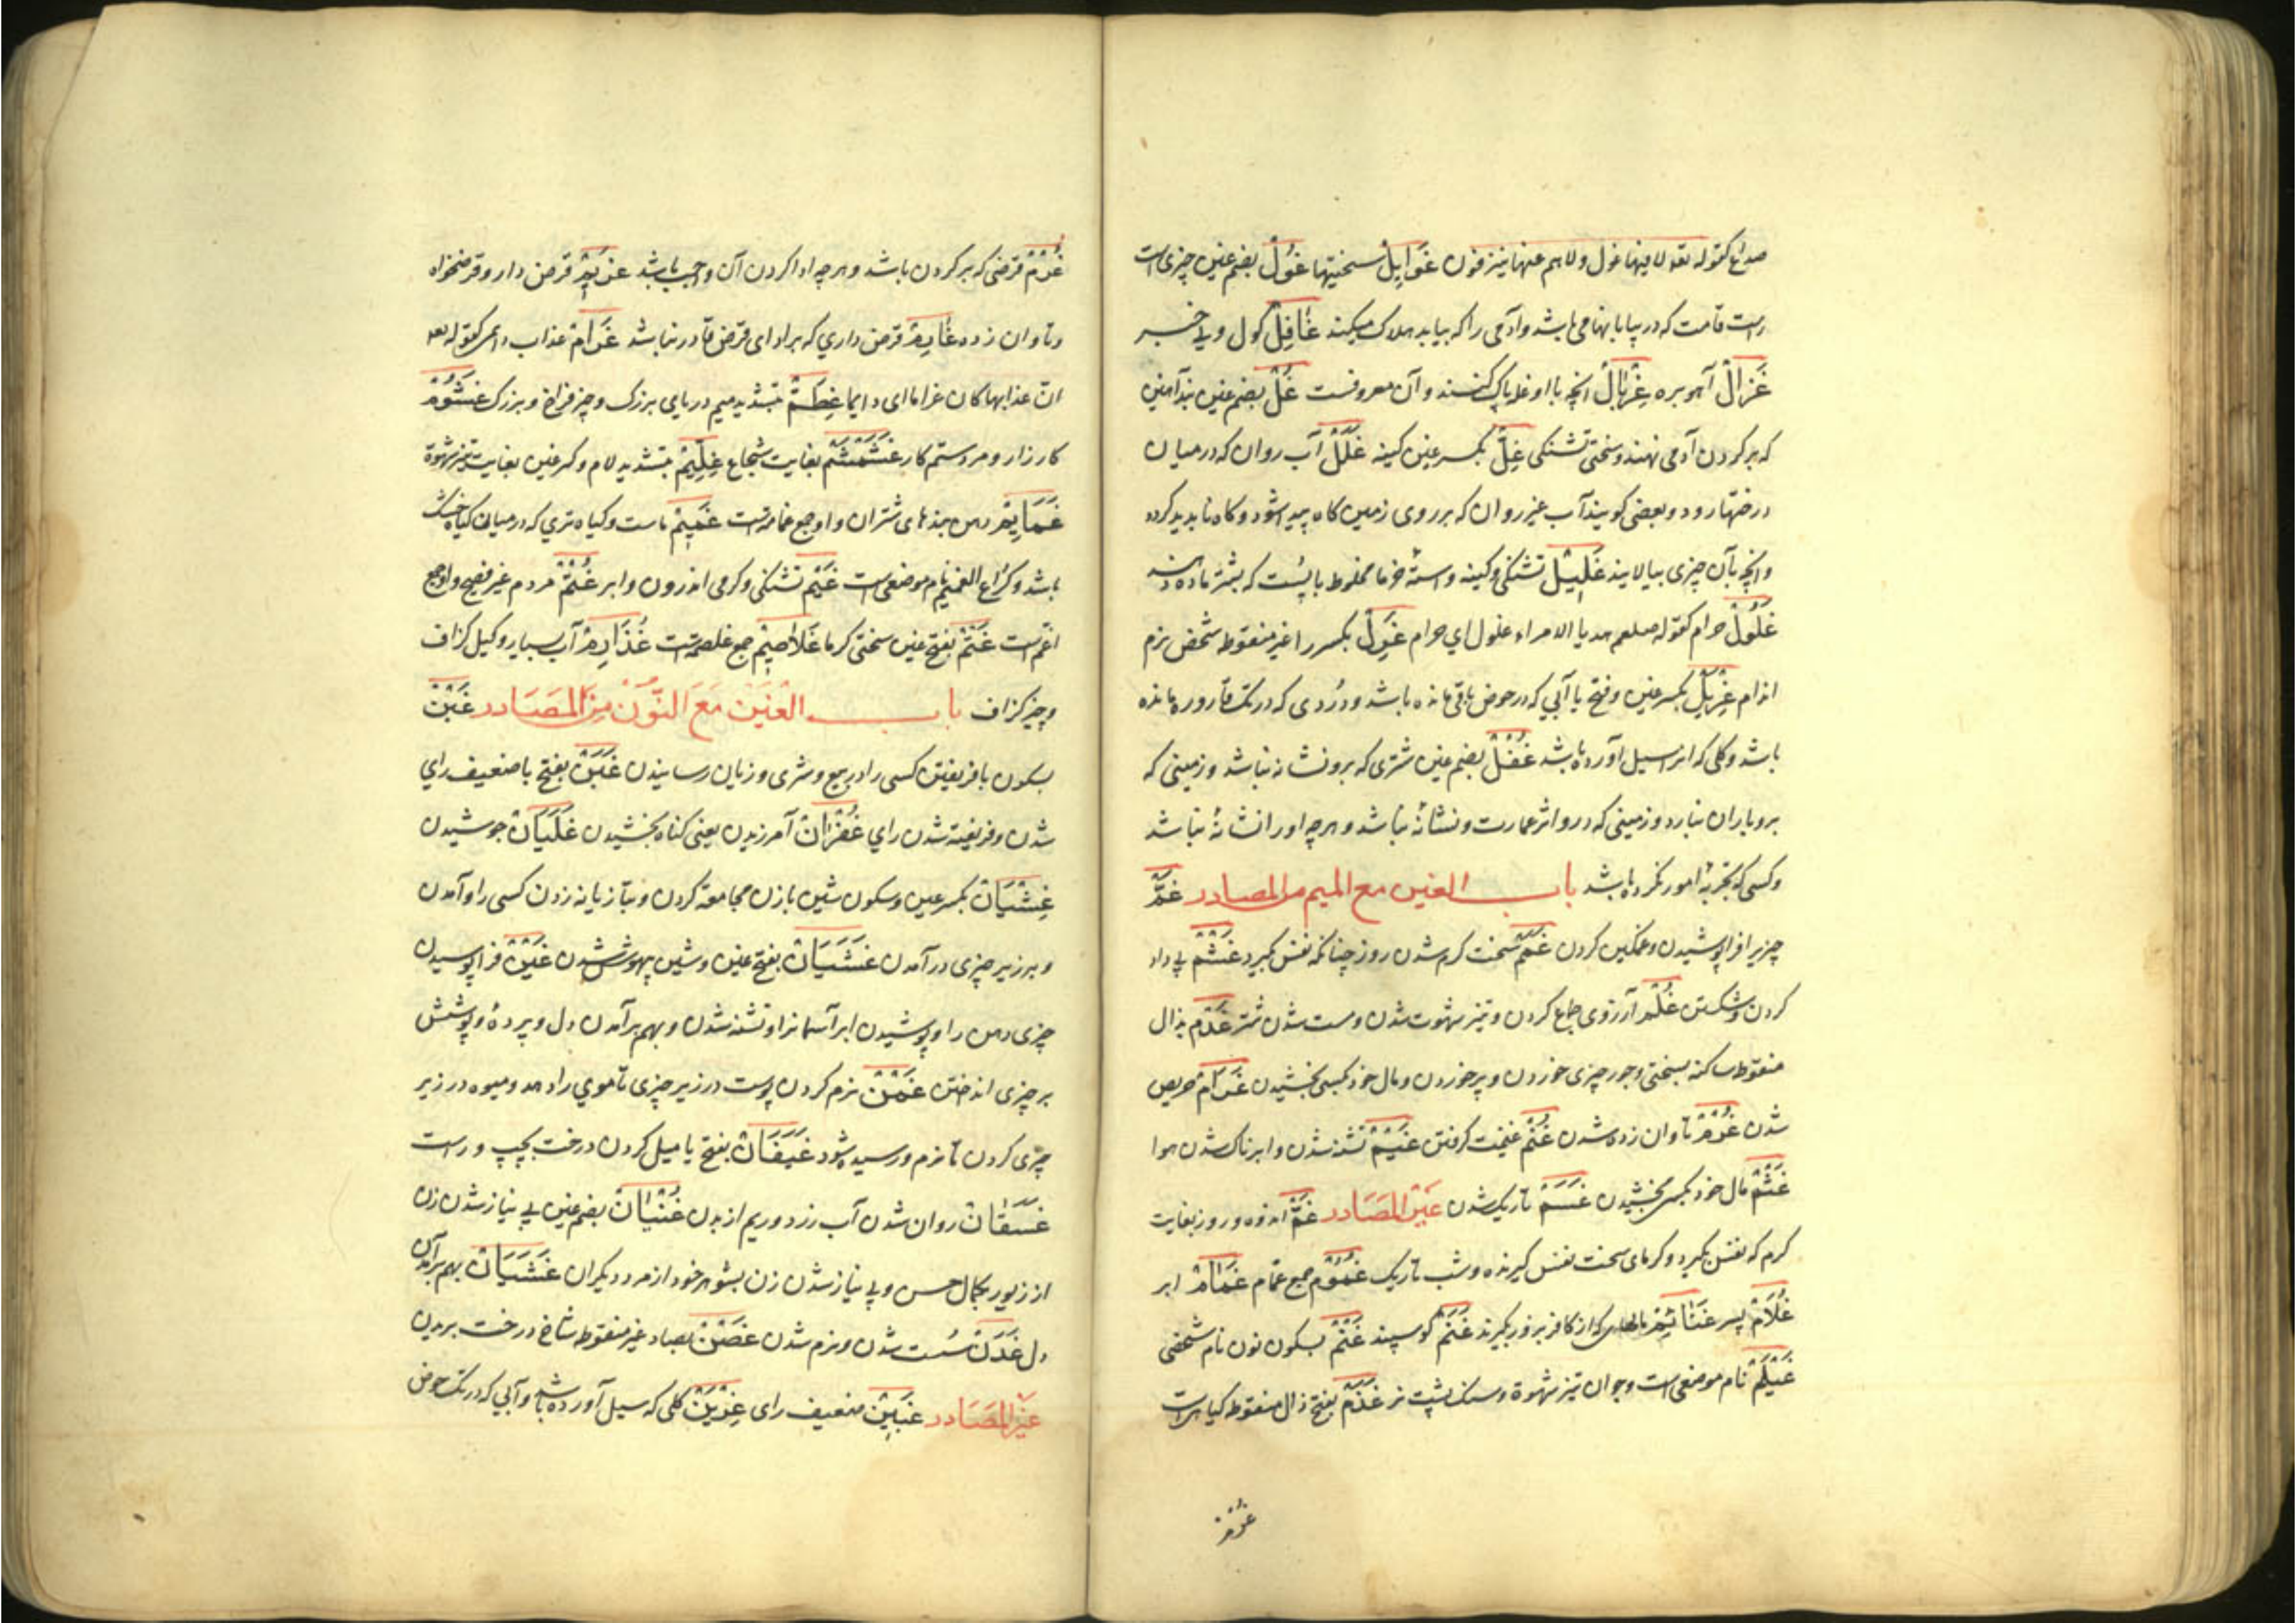 صداع کقوله تعه لا فیها غول ولا هم عنها ینزفون غَوَایِلْ سختیها غُولْ بضم غین چیزی است
راست قامت که در بیابانها می باشد و آدمی را که بیابد هلاک میکند غَافِلْ کول و بی خبر
غَزَالْ آهو بره غِرْبَالْ انچه با او غله پاک کنند و آن معروفست غُلّ بضم غین بند آهنین
که بر گردن آدمی نهند و سختی تشنکی غِلّ بکسر غین کینه غَلَلْ آب روان که در میان
درختها رود و بعضی کویند آب غیر روان که بر روی زمین کاه پیدا شود و کاه ناپدید کردد
وانچه بآن چیزی بیالایند غَلِیْلْ تشنکی و کینه و استهٔ خرما مخلوط با پست که بشتر ماده دهند
غُلُولْ حرام کقوله صلعم هدایا الامراء غلول ای حرام غَرِلْ بکسر را غیر منقوطه شخص نرم
اندام غِرْیَلْ بکسر غین و فتح یا آبی که در حوض باقی مانده باشد و دُردی که در تک قاروره مانده
باشد و کلی که انرا سیل آورده باشد غُفْلْ بضم غین شتری که برو نشانه نباشد و زمینی که
برو باران نبارد و زمینی که درو اثر عمارت و نشانهٔ نباشد و هرچه اورا نشانهٔ نباشد
وکسی که تجربهٔ امور نکرده باشد باب الغین مع المیم من المصادر غَمّ
چیزیرا فرا پوشیدن و غمکین کردن غَمّ سخت کرم شدن روز چنانکه نفس کیرد غَشْمْ بی داد
کردن و شکستن غُلْمَه آرزوی جماع کردن و تیز شهوت شدن و مست شدن شتر غَذْمْ بذال
منقوطه ساکنه بسختی و جور چیزی خوردن و پر خوردن و مال خود بکسی بخشیدن غَرَامْ حریص
شدن غُرْمْ تاوان زده شدن غُنْمْ غنیمت کرفتن غَیْمْ تشنه شدن و ابرناک شدن هوا
غَثْمْ مال خود بکسی بخشیدن غَسَمْ تاریک شدن غیر المَصَادر غَمّ اندوه و روز بغایت
کرم که نفس بکیرد و کرمای سخت نفس کیرنده و شب تاریک غُمُوْم جمع غمّام غَمَامْ ابر
غُلَامْ پسر غَنَائِمْ مالهایی که از کافر بزور بکیرند غَنَمْ کوسپند غَنْمْ بسکون نون نام شخصی
غَیْلَمْ نام موضعی است و جوان تیز شهوة و سنک پشت نر غَذَمْ بفتح ذال منقوطه کیاهیست
غرم
غُرْمْ قرضی که بر کردن باشد و هرچه ادا کردن آن واجب باشد غَرِیْم قرض دار و قرضخواه
و تاوان زده غَارِمْ قرض داری که بر ادای قرض قادر نباشد غَرَامْ عذاب دایمی کقوله تعه
انّ عذابها کان غراما ای دایما غِطَمّ بتشدید میم دریای بزرک و چیز فراخ و بزرک غَشُوْمْ
کارزار و مرد ستم کار غَشَمْشَمْ بغایت شجاع غِلِّیْمْ بتشدید لام و کسر غین بغایت تیز شهوة
غَمَایِمْ دهن بندهای شتران و او جمع غمامه است غَمِیْمْ ماست و کیاه تری که در میان کیاه خشک
باشد و کُرَاع الغمیم نام موضعی است غَیْمْ تشنکی و کرمی اندرون و ابر غُتْمْ مردم غیر فصیح و او جمع
اغتم است غَتْمْ بفتح غین سختی کرما غَلَاصِیْمْ جمع غلصمه است غُذَارِمْ آب بسیار و کیل کزاف
و چیز کزاف باب الغَیْن مَعَ النُّوْن مِنَ المَصَادر غَبْنْ
بسکون با فریفتن کسی را در بیع و شری و زیان رسانیدن غَبَنْ بفتح با ضعیف رای
شدن و فریفته شدن رای غُفْرَانْ آمرزیدن یعنی کناه بخشیدن غَلَیَانْ جوشیدن
غِشْیَانْ بکسر غین و سکون شین با زن مجامعة کردن و بتازیانه زدن کسی را و آمدن
و بر زبر چیزی در آمدن غَشَیَانْ بفتح غین و شین بیهوش شدن غَیْنْ فرا پوسیدن
چیزی دهن را و پوشیدن ابر آسمانرا و تشنه شدن و بهم بر آمدن دل و پردهٔ و پوشش
بر چیزی انداختن غَمْنْ نرم کردن پوست در زیر چیزی تا موی را دهد و میوه در زیر
چیزی کردن تا نرم و رسیده شود غَیَفَانْ بفتح یا میل کردن درخت بچپ و راست
غَسَقَانْ روان شدن آب زرد و ریم از بدن غُنْیَانْ بضم غین بی نیاز شدن زن
از زیور بکمال حسن و بی نیاز شدن زن بشوهر خود از مرد دیکران غَثَیَانْ بهم بر آمدن
دل غَدَنْ سُست شدن و نرم شدن غَصْنْ بصاد غیر منقوطه شاخ درخت بریدن
غیر المَصَادر غَبِیْنْ ضعیف رای غِرْیَنْ کلی که سیل آورده باشد و آبی که در تک حوض